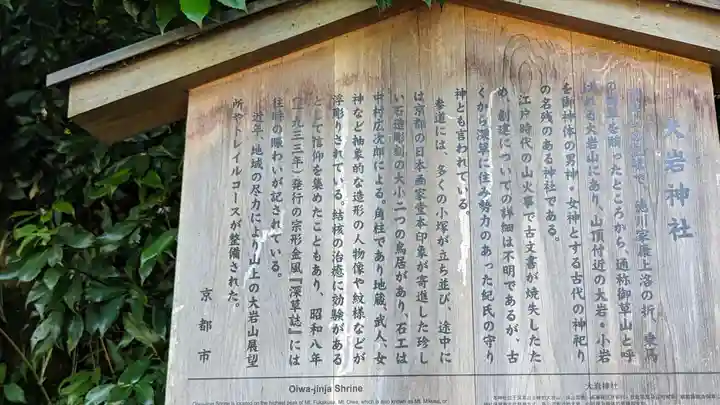 大岩神社
徳川家康上洛の折、乗馬
を賜ったところから、通称御草山と呼
ばれる大岩山にあり、山頂付近の大岩・小岩
を御神体の男神・女神とする古代の神祀り
の名残のある神社である。
江戸時代の山火事で古文書が焼失したた
め、創建についての詳細は不明であるが、古
くから深草に住み勢力のあった紀氏の守り
神とも言われている。
参道には、多くの小塚が立ち並び、途中に
は京都の日本画家堂本印象が寄進した珍し
い石造彫刻の大小二つの鳥居があり、石工は
中村広次郎による。角柱であり地蔵、武人、女
神など抽象的な造形の人物像や紋様などが
浮彫りされている。結核の治癒に効験がある
として信仰を集めたこともあり、昭和八年
(一九三三年)発行の宗形金風『深草誌』には
往時の賑わいが記されている。
近年、地域の尽力により山上の大岩山展望
所やトレイルコースが整備された。
京都市
Oiwa-jinja Shrine
Oiwa-jinja Shrine is located on the highest peak of Mt. Fukakusa, Mt. Oiwa, which is also known as Mt. Mikusa, or
大岩神社